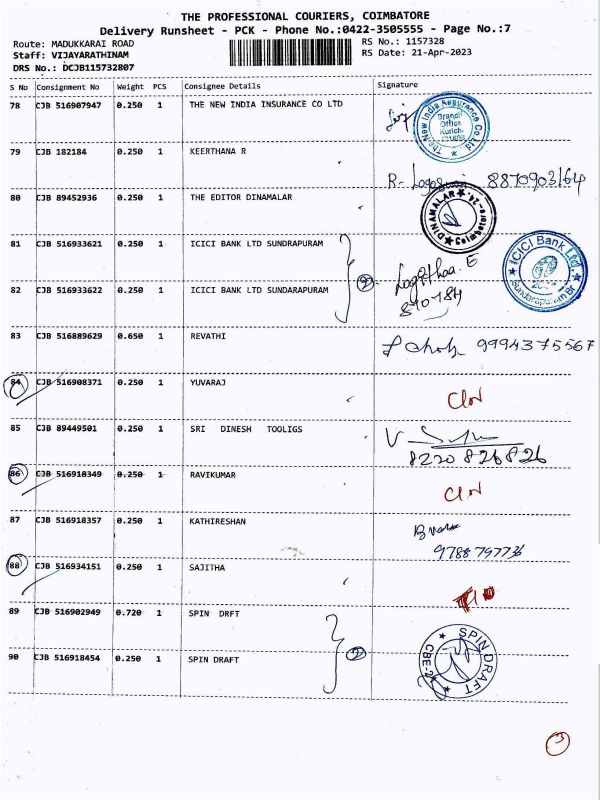 THE PROFESSIONAL COURIERS, COIMBATORE
Delivery Runsheet - PCK - Phone No.:0422-3505555 - Page No.:7
Route: MADUKKARAI ROAD
Staff: VIJAYARATHINAM
DRS No.: DCJB115732807
RS No.: 1157328
RS Date: 21-Apr-2023
S No Consignment No Weight PCS Consignee Details Signature
78 CJB 516907947 0.250 1 THE NEW INDIA INSURANCE CO LTD
The New India Assurance Co. Ltd
Branch
Office
Kurichi
79 CJB 182184 0.250 1 KEERTHANA R
8870903164
80 CJB 89452936 0.250 1 THE EDITOR DINAMALAR
DINAMALAR
Coimbatore
81 CJB 516933621 0.250 1 ICICI BANK LTD SUNDRAPURAM
ICICI Bank Ltd.
Sundarapuram Br
2
82 CJB 516933622 0.250 1 ICICI BANK LTD SUNDARAPURAM
83 CJB 516889629 0.650 1 REVATHI
9994375567
84 CJB 516908371 0.250 1 YUVARAJ
85 CJB 89449501 0.250 1 SRI DINESH TOOLIGS
8220826826
86 CJB 516918349 0.250 1 RAVIKUMAR
87 CJB 516918357 0.250 1 KATHIRESHAN
9788797736
88 CJB 516934151 0.250 1 SAJITHA
89 CJB 516902949 0.720 1 SPIN DRFT
2
SPIN DRAFT
90 CJB 516918454 0.250 1 SPIN DRAFT
3